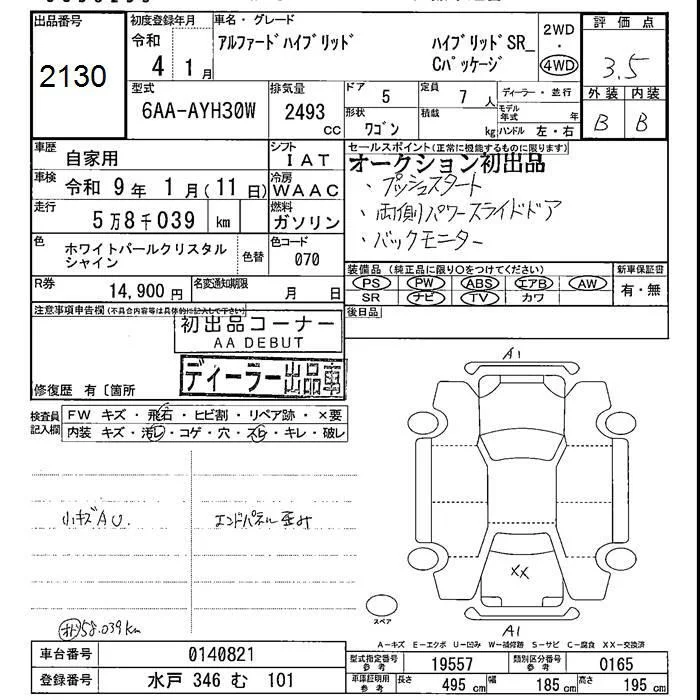 出品番号
2130
初度登録年月
令和
4 1月
車名・グレード
アルファードハイブリッド
ハイブリッドSR_
Cパッケージ
2WD
・
4WD
評価点
3.5
外装 内装
B B
型式
6AA-AYH30W
排気量
2493
cc
ドア 5
定員 7人
形状 ワゴン
積載 kg
ディーラー・並行
モデル年式 年
ハンドル 左・右
車歴 自家用
シフト IAT
車検 令和 9年 1月(11日)
冷房 WAAC
走行 5万8千039 km
燃料 ガソリン
色 ホワイトパールクリスタル
シャイン
色替
色コード 070
R券 14,900円
名変通知期限 月 日
セールスポイント(正常に機能するものに限ります)
オークション初出品
・プッシュスタート
・両側パワースライドドア
・バックモニター
装備品(純正品に限り○をつけてください)
PS PW ABS エアB AW
SR ナビ TV カワ
新車保証書
有・無
後日品
注意事項申告欄(不具合内容等は具体的に記入して下さい)
初出品コーナー
AA DEBUT
ディーラー出品車
修復歴 有〔箇所
検査員
記入欄
FW キズ・飛石・ヒビ割・リペア跡・×要
内装 キズ・汚れ・コゲ・穴・スレ・キレ・破レ
小キズAU.
エンドパネル歪み
メト58.039km
A1
XX
スペア
A1
A-キズ E-エクボ U-凹み W-補修跡 S-サビ C-腐食 XX-交換済
車台番号 0140821
登録番号 水戸 346 む 101
型式指定番号 参考 19557
類別区分番号 参考 0165
車庫証明用 参考 長さ 495cm 幅 185cm 高さ 195cm